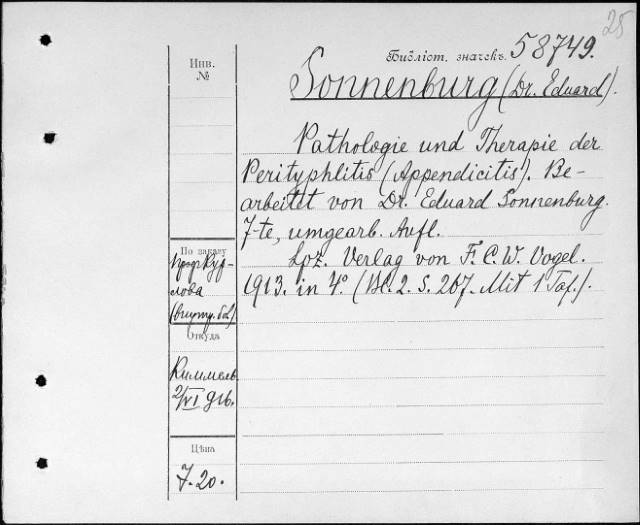 25
Библіот. значекъ. 58749.
Инв.
№
Sonnenburg (Dr. Eduard).
Pathologie und Therapie der
Perityphlitis (Appendicitis). Be-
arbeitet von Dr. Eduard Sonnenburg.
7-te, umgearb. Aufl.
Lpz. Verlag von F. C. W. Vogel.
1913. in 4° (Bl. 2. S. 267. Mit 1 Taf.).
По заказу
проф Кур-
лова
Откуда
Киммель.
2/VI
Цѣна
7-20.